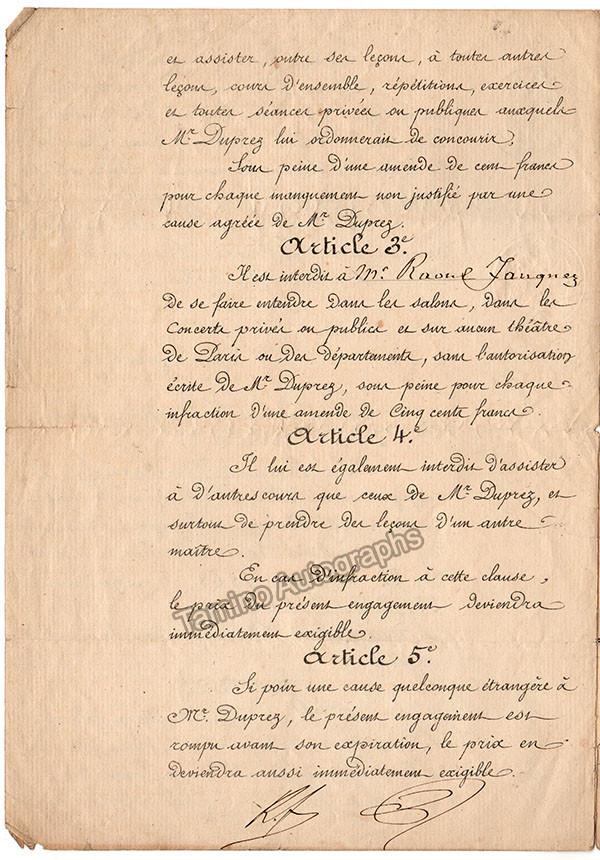 et assister, outre ses leçons, à toutes autres
leçons, cours d'ensemble, répétitions, exercices
et toutes séances privées ou publiques auxquels
Mr. Duprez lui ordonnerait de concourir,
Sous peine d'une amende de cent francs
pour chaque manquement non justifié par une
cause agréée de Mr. Duprez.
Article 3e.
Il est interdit à Mr. Raoul
de se faire entendre dans les salons, dans les
Concerts privés ou publics et sur aucun théâtre
de Paris ou des départements, sans l'autorisation
écrite de Mr. Duprez, sous peine pour chaque
infraction d'une amende de Cinq cents francs.
Article 4.e
Il lui est également interdit d'assister
à d'autres cours que ceux de Mr. Duprez, et
surtout de prendre des leçons d'un autre
maître.
En cas d'infraction à cette clause,
le prix du présent engagement deviendra
immédiatement exigible.
Article 5e.
Si pour une cause quelconque étrangère à
Mr. Duprez, le présent engagement est
rompu avant son expiration, le prix en
deviendra aussi immédiatement exigible.
Tamino Autographs